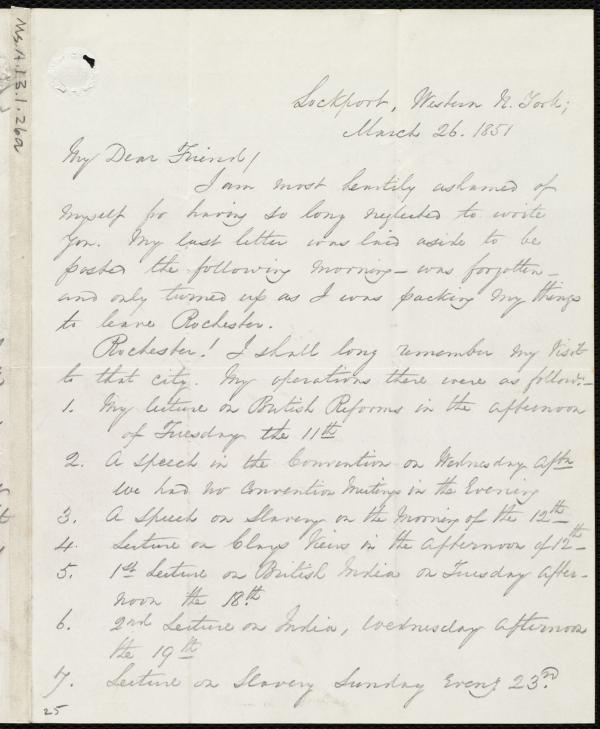 Ms.A.1.3.1.26a
Lockport, Western N. York;
March 26. 1851
My Dear Friend!
I am most heartily ashamed of
myself for having so long neglected to write
you. My last letter was laid aside to be
posted the following morning – was forgotten –
and only turned up as I was packing my things
to leave Rochester.
Rochester! I shall long remember my visit
to that city. My operations there were as follow:–
1. My lecture on British Reforms in the afternoon
of Tuesday the 11th
2. A speech in the Convention on Wednesday aftn
we had no convention meetings in the Evening
3. A speech on Slavery on the Morning of the 12th –
4. Lecture on Clays Views in the afternoon of 12th –
5. 1st Lecture on British India on Tuesday after-
noon the 18th
6. 2nd Lecture on India, Wednesday afternoon
the 19th
7. Lecture on Slavery Sunday Eveng 23rd
25